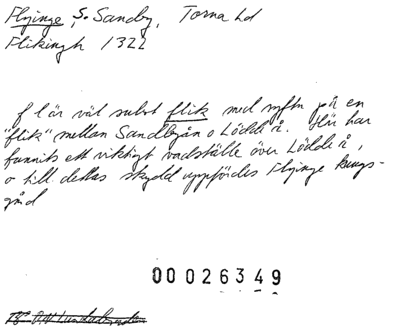 Flyinge, S. Sandby, Torna hd
Flikingh 1322
f l är väl subst flik med syftn på en
"flik" mellan Sandbyån o Lödde å. Här har
funnits ett viktigt vadställe över Lödde å,
o till dettas skydd uppfördes Flyinge kungs-
gård
00026349